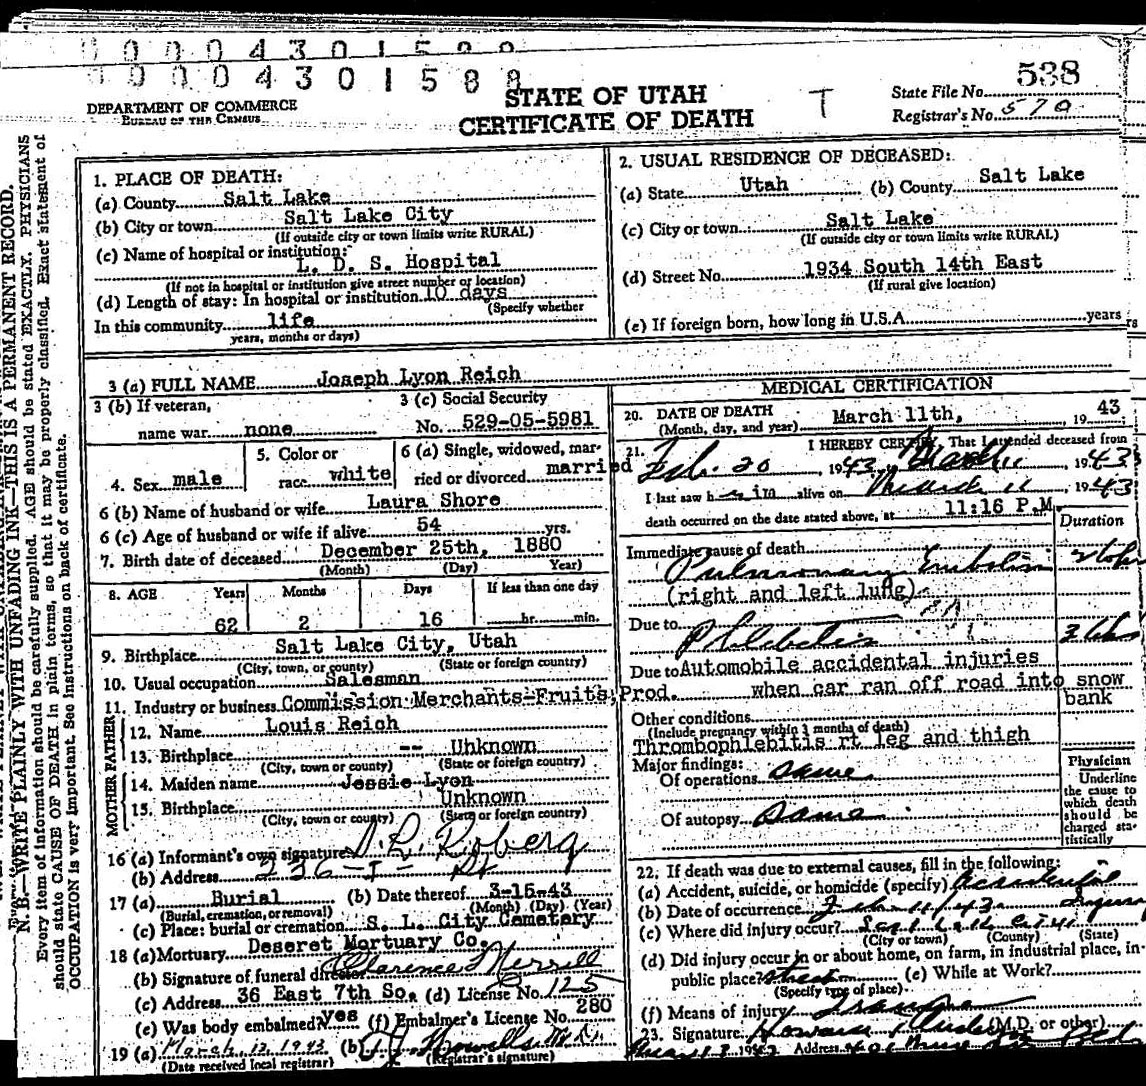 0 0 0 0 4 3 0 1 5 8 8
0 0 0 0 4 3 0 1 5 8 8
DEPARTMENT OF COMMERCE
BUREAU OF THE CENSUS
STATE OF UTAH
CERTIFICATE OF DEATH
T
State File No. 538
Registrar's No. 570
N.B.—WRITE PLAINLY WITH UNFADING INK—THIS IS A PERMANENT RECORD.
Every item of information should be carefully supplied. AGE should be stated EXACTLY. PHYSICIANS
should state CAUSE OF DEATH in plain terms, so that it may be properly classified. Exact statement of
OCCUPATION is very important. See Instructions on back of certificate.
1. PLACE OF DEATH:
(a) County Salt Lake
(b) City or town Salt Lake City
(If outside city or town limits write RURAL)
(c) Name of hospital or institution:
L. D. S. Hospital
(If not in hospital or institution give street number or location)
(d) Length of stay: In hospital or institution 10 days
(Specify whether
In this community life
years, months or days)
2. USUAL RESIDENCE OF DECEASED:
(a) State Utah (b) County Salt Lake
(c) City or town Salt Lake
(If outside city or town limits write RURAL)
(d) Street No. 1934 South 14th East
(If rural give location)
(e) If foreign born, how long in U.S.A. years
3 (a) FULL NAME Joseph Lyon Reich
3 (b) If veteran,
name war none
3 (c) Social Security
No. 529-05-5981
4. Sex male
5. Color or
race white
6 (a) Single, widowed, mar-
ried or divorced married
6 (b) Name of husband or wife Laura Shore
6 (c) Age of husband or wife if alive 54 yrs.
7. Birth date of deceased December 25th, 1880
(Month) (Day) Year)
8. AGE Years Months Days If less than one day
62 2 16 hr. min.
9. Birthplace Salt Lake City, Utah
(City, town, or county) (State or foreign country)
10. Usual occupation Salesman
11. Industry or business Commission Merchants-Fruits, Prod.
MOTHER FATHER
12. Name Louis Reich
13. Birthplace -- Unknown
(City, town or county) (State or foreign country)
14. Maiden name Jessie Lyon
15. Birthplace Unknown
(City, town or county) (State or foreign country)
16 (a) Informant's own signature D. R. Roberg
(b) Address 236 - I - St
17 (a) Burial (b) Date thereof 3-15-43
(Burial, cremation, or removal) (Month) (Day) (Year)
(c) Place: burial or cremation S. L. City Cemetery
18 (a) Mortuary Deseret Mortuary Co.
(b) Signature of funeral director Clarence Merrill
(c) Address 36 East 7th So. (d) License No. 125
(e) Was body embalmed? yes (f) Embalmer's License No. 280
19 (a) March 13 1943 (b)
(Date received local registrar) (Registrar's signature)
MEDICAL CERTIFICATION
20. DATE OF DEATH March 11th, 19 43
(Month, day, and year)
21. I HEREBY CERTIFY, That I attended deceased from
Feb. 20, 1943, March 11, 1943
I last saw h im alive on March 11, 1943
death occurred on the date stated above, at 11:16 P.M.
Duration
Immediate cause of death
Pulmonary Embolism
(right and left lung)
Due to Phlebitis
Due to Automobile accidental injuries
when car ran off road into snow
bank
Other conditions
(Include pregnancy within 3 months of death)
Thrombophlebitis rt leg and thigh
Major findings:
Of operations same
Of autopsy Same
Physician
Underline
the cause to
which death
should be
charged sta-
tistically
22. If death was due to external causes, fill in the following:
(a) Accident, suicide, or homicide (specify) Accidental
(b) Date of occurrence Feb. 11/43 Injury
(c) Where did injury occur? Salt Lake City
(City or town) (County) (State)
(d) Did injury occur in or about home, on farm, in industrial place, in
public place? street (e) While at Work?
(Specify type of place)
(f) Means of injury
23. Signature Howard (M.D. or other)
Address